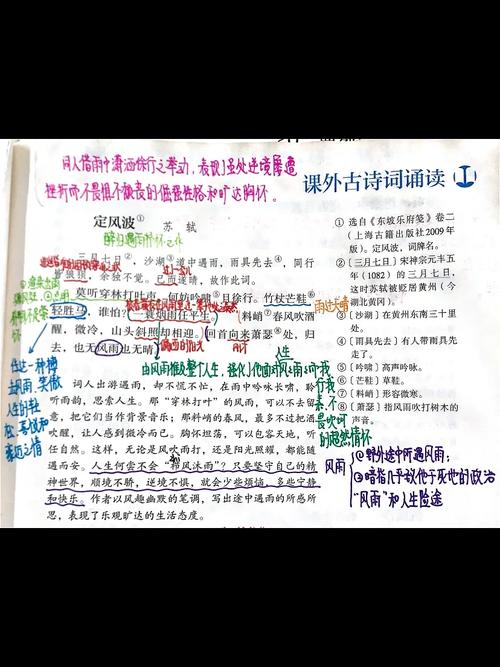 词人借雨中潇洒徐行之举动,表现了虽处逆境屡遭
挫折而不畏惧不颓丧的倔强性格和旷达胸怀。
课外古诗词诵读 I
定风波①
苏轼
三月七日②,沙湖③道中遇雨,雨具先去④,同行
皆狼狈,余独不觉。已而遂晴,故作此词。
莫听穿林打叶声,何妨吟啸⑤且徐行。竹杖芒鞋⑥
轻胜马,谁怕?一蓑烟雨任平生。
料峭⑦春风吹酒
醒,微冷,山头斜照却相迎。回首向来萧瑟⑧处,归
去,也无风雨也无晴。
雨过天晴
人生
由风雨推及整个人生,
风雨
①野外途中所遇风雨;
②暗指几乎致他于死地的政治
“风雨”和人生险途
词人出游遇雨,却不慌不忙,在雨中吟咏长啸,聆
听雨韵,思索人生。那“穿林打叶”的风雨,可以不去留
意,把它们当作背景音乐;那料峭的春风,最多不过把酒
吹醒,让人感到微冷而已。胸怀坦荡,可以包容天地,听
任自然。这样,无论是风吹雨打,还是阳光照耀,都能随
遇而安。人生何尝不会“栉风沐雨”?只要坚守自己的精
神世界,顺境不骄,逆境不惧,就会少些烦恼,多些宁静
和快乐。作者以风趣幽默的笔调,写出途中遇雨的所感所
思,表现了乐观旷达的生活态度。
① 选自《东坡乐府笺》卷二
(上海古籍出版社2009年
版)。定风波,词牌名。
② 〔三月七日〕宋神宗元丰五
年(1082)的三月七日,
这时苏轼被贬居黄州(今
湖北黄冈)。
③ 在黄州东南三十里
处。
④ 〔雨具先去〕有人带雨具先
走了。
⑤ 〔吟啸〕高声吟咏。
⑥ 〔芒鞋〕草鞋。
⑦ 〔料峭〕形容微寒。
⑧ 〔萧瑟〕指风雨吹打树木的
声音。